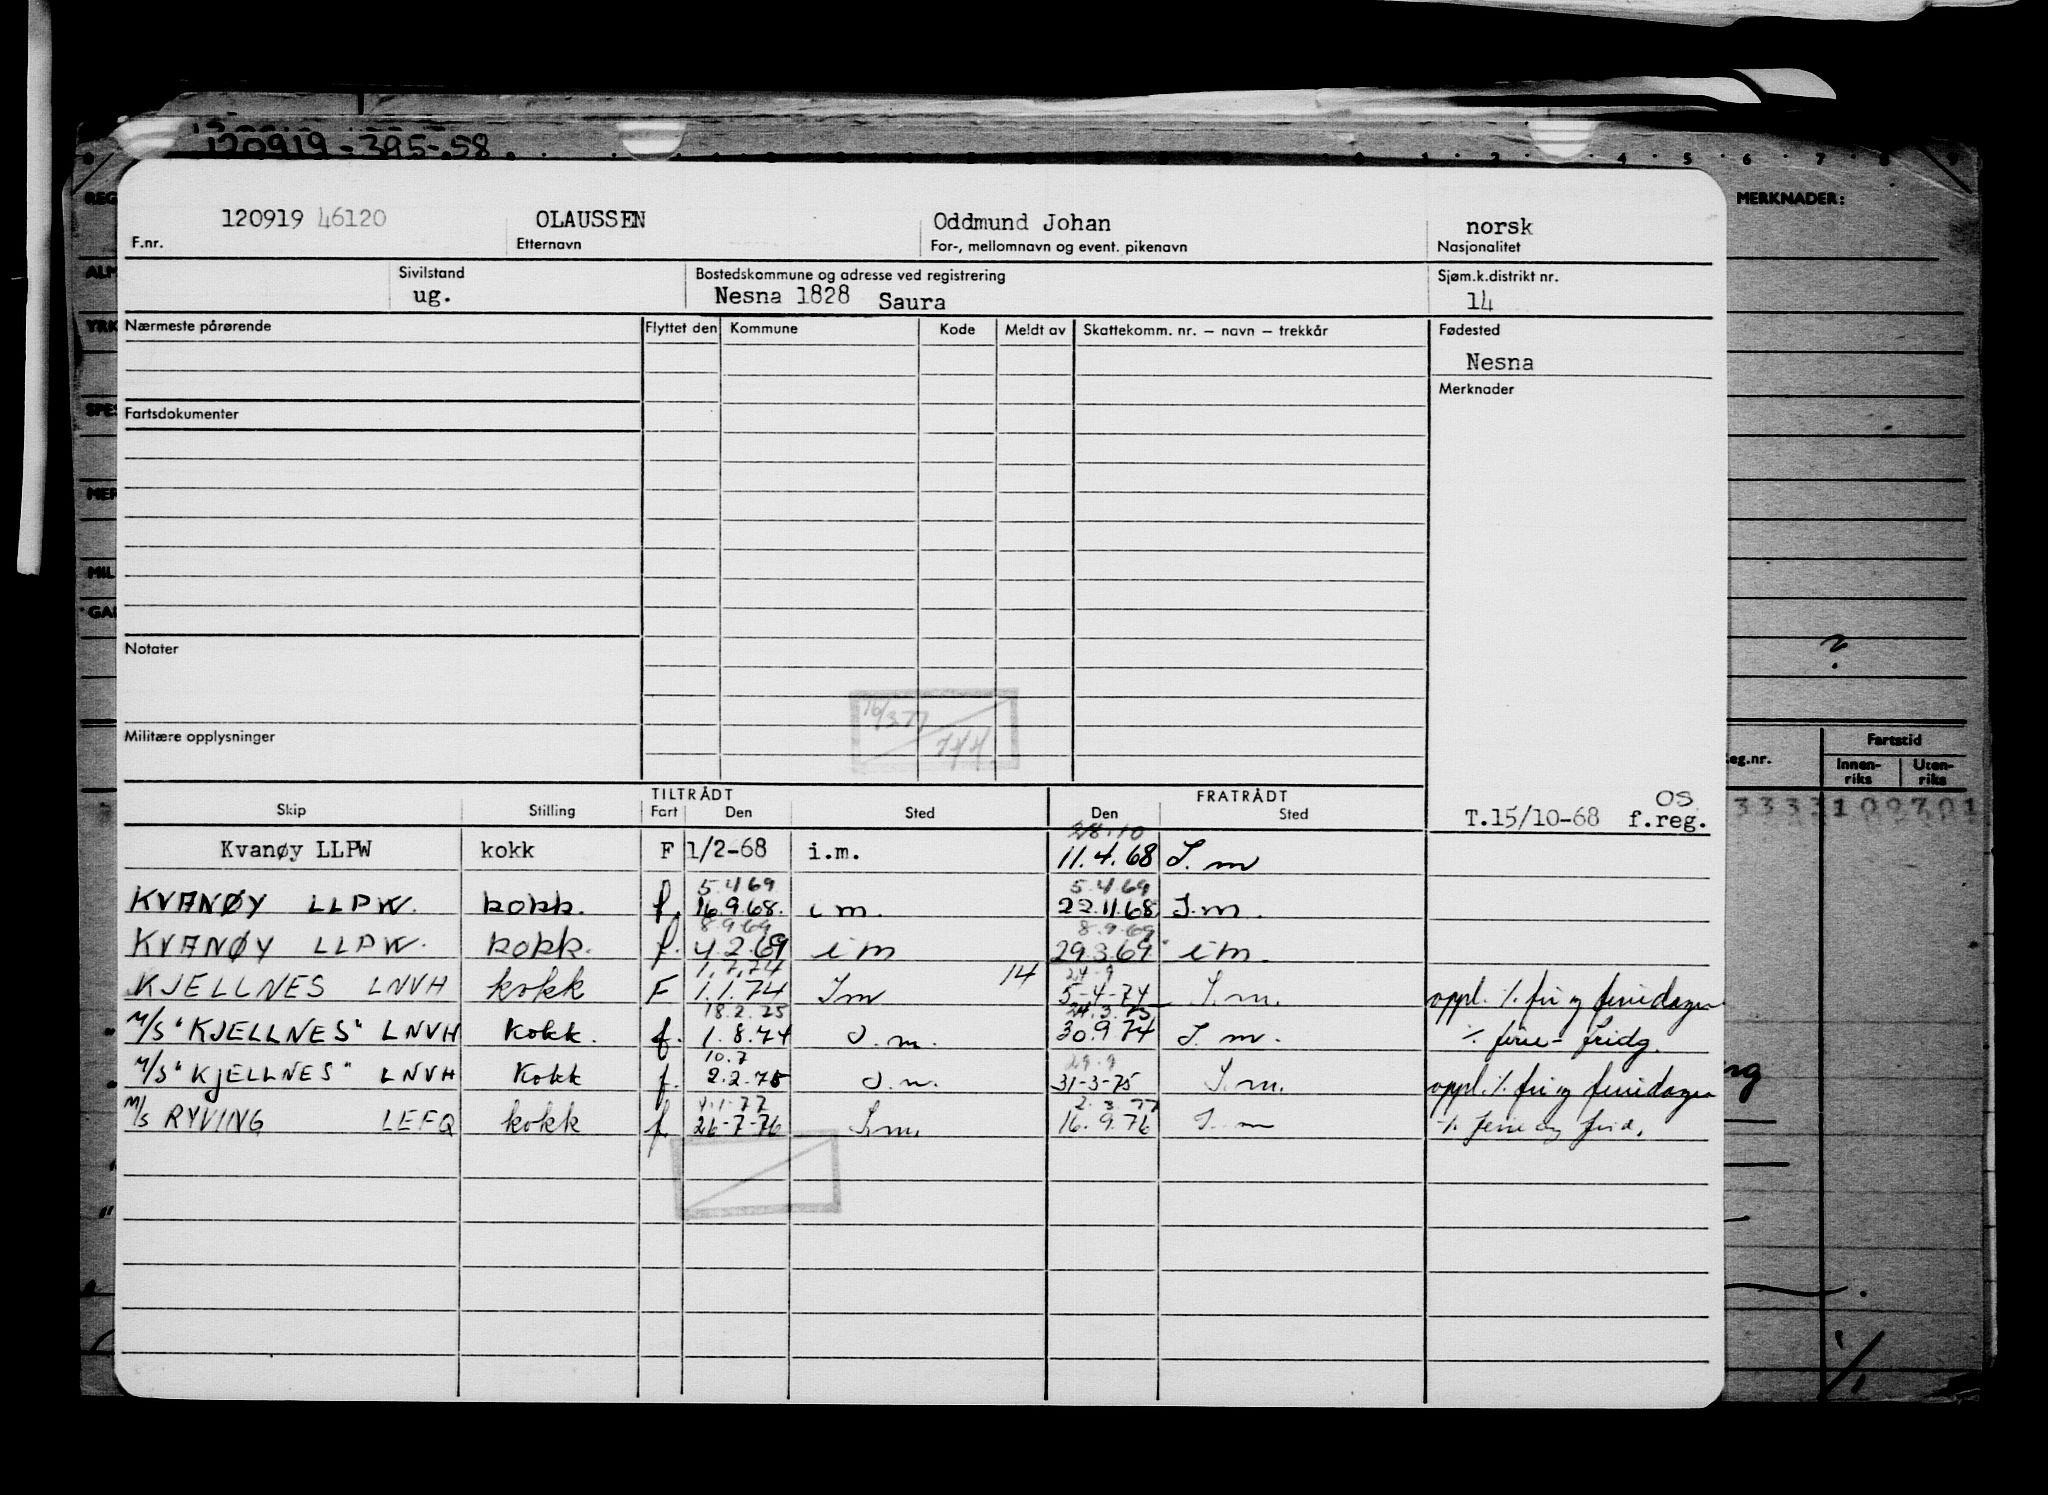 120919-395-58
120919 46120 OLAUSSEN Oddmund Johan norsk
F.nr. Etternavn For-, mellomnavn og event. pikenavn Nasjonalitet
Sivilstand Bostedskommune og adresse ved registrering Sjøm.k.distrikt nr.
ug. Nesna 1828 Saura 14
Nærmeste pårørende Flyttet den Kommune Kode Meldt av Skattekomm. nr. – navn – trekkår Fødested
Nesna
Merknader
Fartsdokumenter
Notater
16/3.77
144
Militære opplysninger
TILTRÅDT FRATRÅDT
Skip Stilling Fart Den Sted Den Sted
OS
T.15/10-68 f.reg.
28.10
Kvanøy LLPW kokk F 1/2-68 i.m. 11.4.68 I.m
5.4 69 5.4 69
KVANØY LLPW. kokk. f. 16.9.68. i m. 22.11.68 I.m.
8.9 69 8.9.69
KVANØY LLPW. kokk. f. 4.2.69 i m 29.3.69 i m.
1.7.74 14 24-9
KJELLNES LNVH kokk F 1.1.74 I m 5-4-74 I.m. oppl. %. fri og feriedager
18.2.75 24.3.75
M/S "KJELLNES" LNVH Kokk. f. 1.8.74 I.m. 30.9.74 I.m. %. ferie- fridg.
10.7 29.9
M/S "KJELLNES" LNVH Kokk f. 2.2.75 I.m. 31-3-75 I.m. oppl. %. fri og feriedager
4.1.77 2.3.77
M/S RYVING LEFQ kokk f. 26-7-76 I.m. 16.9.76 I.m %. ferie og frid.
MERKNADER:
?
Fartstid
Reg.nr. Innen-riks Uten-riks